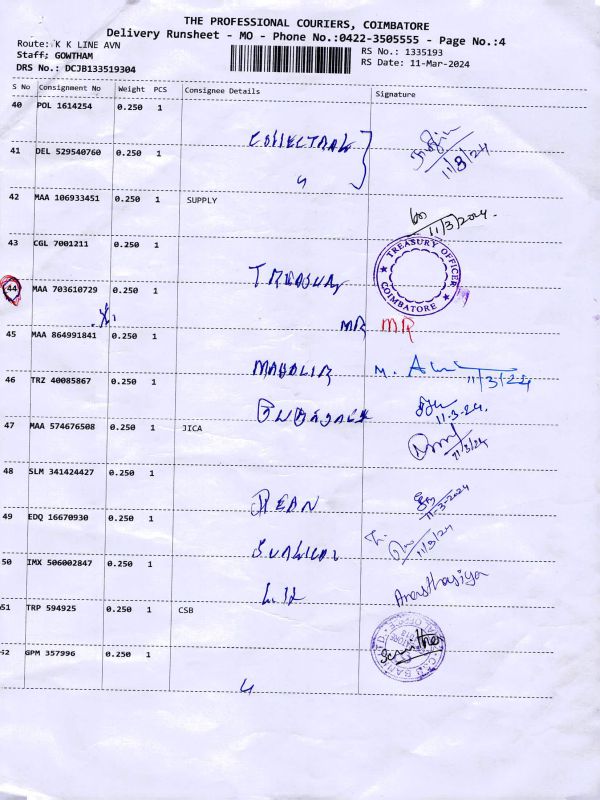 THE PROFESSIONAL COURIERS, COIMBATORE
Delivery Runsheet - MO - Phone No.:0422-3505555 - Page No.:4
Route: K K LINE AVN
Staff; GOWTHAM
DRS No.: DCJB133519304
RS No.: 1335193
RS Date: 11-Mar-2024
S No Consignment No Weight PCS Consignee Details Signature
40 POL 1614254 0.250 1
11/3/24
41 DEL 529540760 0.250 1
42 MAA 106933451 0.250 1 SUPPLY
11/3/2024.
43 CGL 7001211 0.250 1
TREASURY OFFICER
COIMBATORE
44 MAA 703610729 0.250 1
MR MR
45 MAA 864991841 0.250 1
M. 11/3/24
46 TRZ 40085867 0.250 1
11.3.24.
47 MAA 574676508 0.250 1 JICA
11/3/24
48 SLM 341424427 0.250 1
11-3-2024
49 EDQ 16670930 0.250 1
11/3/24
50 IMX 506002847 0.250 1
Anasthasiya
51 TRP 594925 0.250 1 CSB
52 GPM 357996 0.250 1